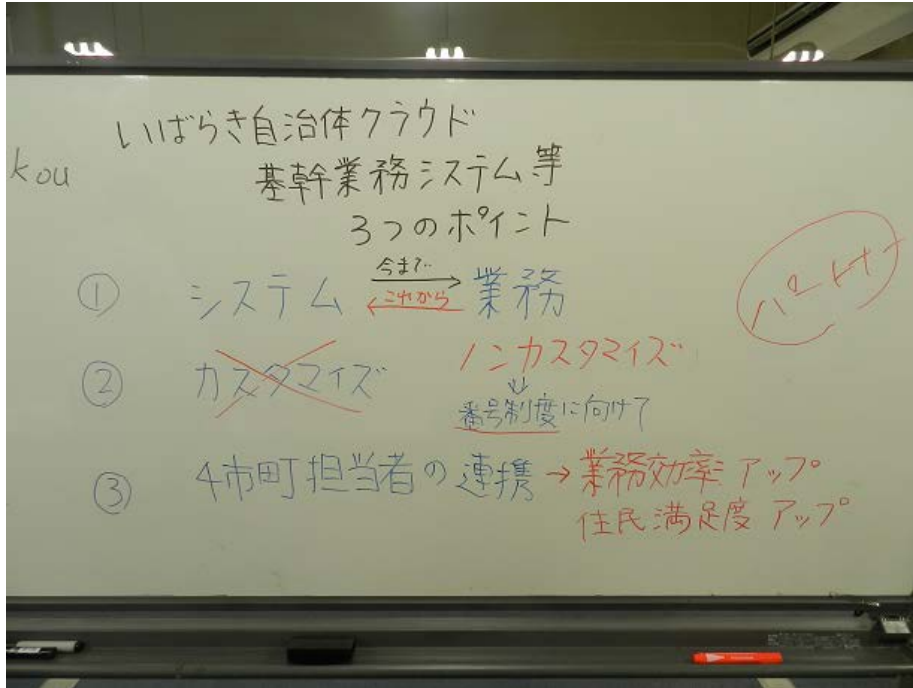 いばらき自治体クラウド
kou
基幹業務システム等
3つのポイント
① システム 今まで… → 業務
← これから
パートナー
② カスタマイズ ノンカスタマイズ
⇓
番号制度に向けて
③ 4市町担当者の連携 → 業務効率アップ
住民満足度アップ